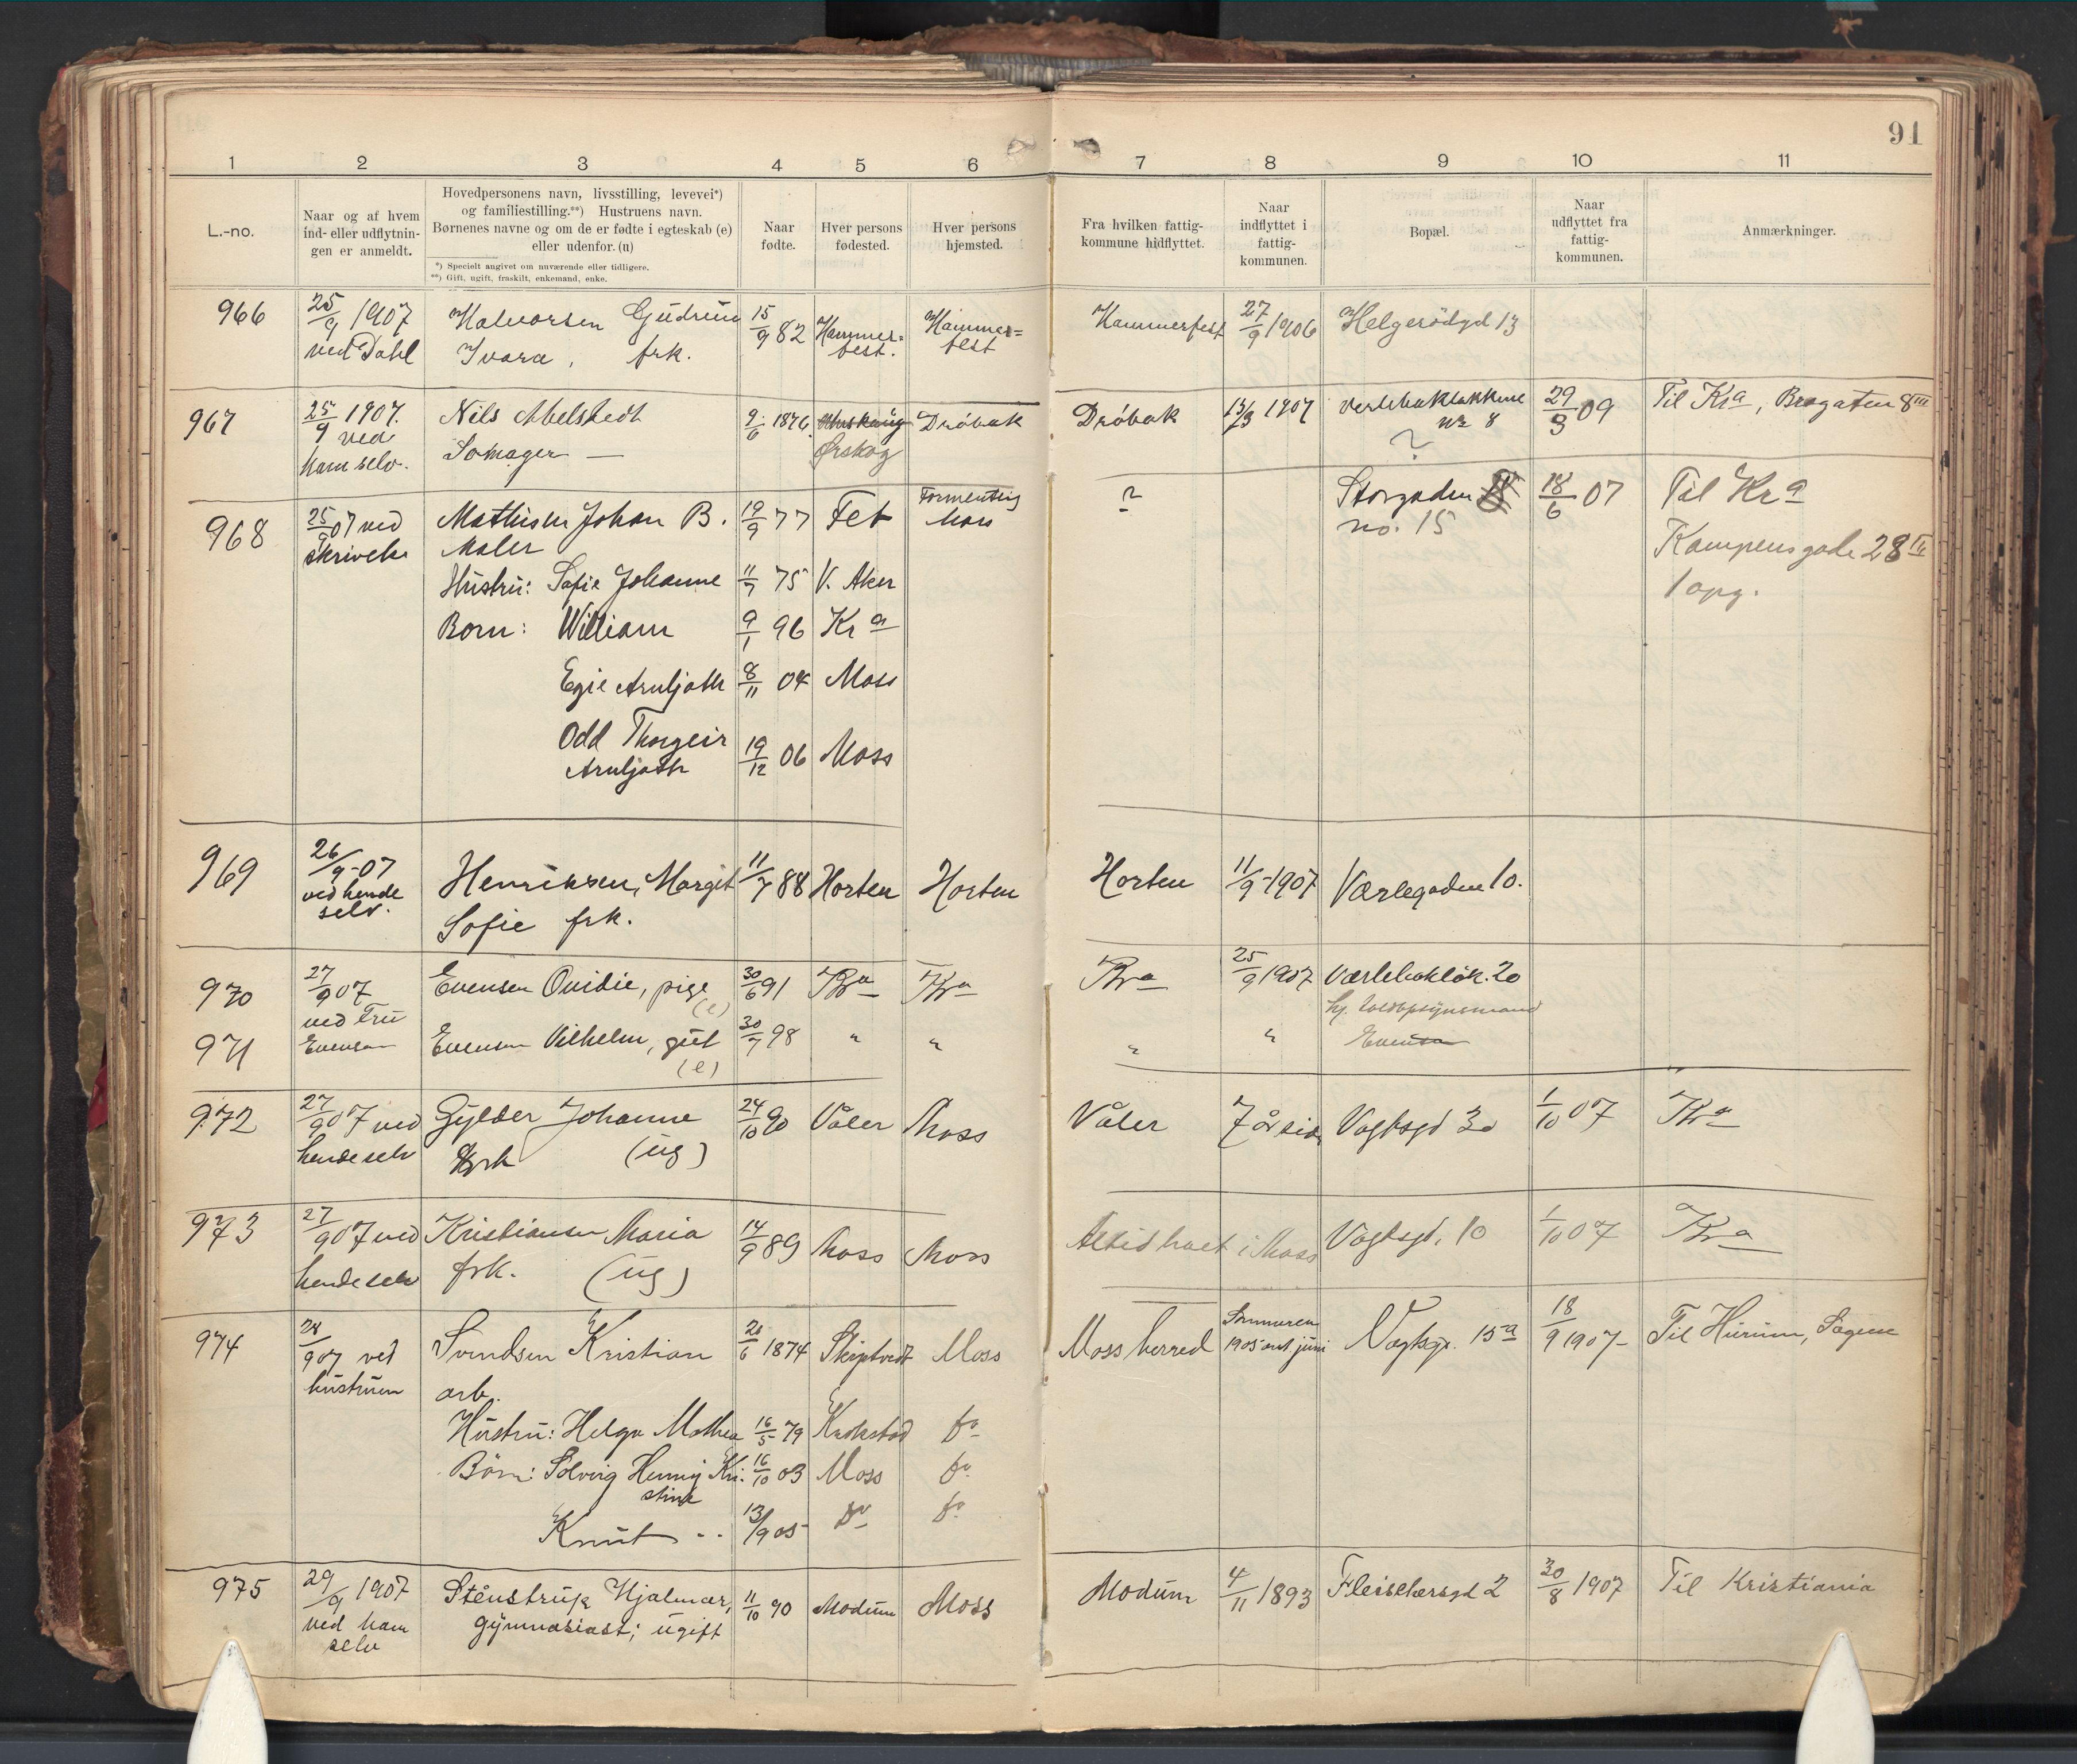 91
1 2 3 4 5 6 7 8 9 10 11
L.-no.
Naar og af hvem
ind- eller udflytnin-
gen er anmeldt.
Hovedpersonens navn, livsstilling, levevei*)
og familiestilling.**) Hustruens navn.
Børnenes navne og om de er fødte i egteskab (e)
eller udenfor. (u)
*) Specielt angivet om nuværende eller tidligere.
**) Gift, ugift, fraskilt, enkemand, enke.
Naar
fødte.
Hver persons
fødested.
Hver persons
hjemsted.
Fra hvilken fattig-
kommune hidflyttet.
Naar
indflyttet i
fattig-
kommunen.
Bopæl.
Naar
udflyttet fra
fattig-
kommunen.
Anmærkninger.
966 25/9 1907 Halvorsen Gudrun 15/9 82 Hammer= Hammer= Hammerfest 27/9 1906 Helgerödgd 13
ved Dahl Ivara, frk. fest. fest
967 25/9 1907. Nils Abelstedt 9/6 1876. Drøbak Drøbak 13/3 1907 Verlebakløkkene 29/3 09 Til Kra, Brogaten 8 III
ved nr 8
ham selv. Somager — Ørskog ?
968 25/9 07 ved Mathisen Johan B. 19/9 77 Fet Formentlig Moss ? Storgaden 18/6 07 Til Kra
skrivelse Maler no. 15 Kampensgade 28 IV
Hustru: Sofie Johanne 11/7 75 V. Aker 1 opg.
Born: William 9/1 96 Kra
Egie Arnljoth 8/11 04 Moss
Odd Thorgeir
Arnljoth 19/12 06 Moss
969 26/9-07 Henriksen, Margit 11/7 88 Horten Horten Horten 11/9-1907 Værlegaden 10.
ved hende Sofie frk.
selv.
970 27/9 07 Evensen Ovidie, pige 30/6 91 Kra Kra Kra 25/9 1907 Værlebakløk. 20
ved Fru (e) hj. toldopsynsmand
971 Evensen Evensen Vilhelm, gut 30/7 98 " " " " Evensen
(e)
972 27/9 07 ved Gylder Johanne 24/10 90 Våler Moss Våler 7 år sid. Vogtsgd 30 1/10 07 Kra
hende selv frk (ug)
973 27/9 07 ved Kristiansen Maria 14/9 89 Moss Moss Altid boet i Moss Vogtsgd. 10 1/10 07 Kra
hende selv frk. (ug)
974 28/9 07 ved Svendsen Kristian 20/6 1874 Skiptvedt Moss Moss herred Sommeren 1905 omt. juni Vogtsgt. 15 a 18/9 1907- Til Hurum, Sagene
hustruen arb.
Hustru: Helga Mathea 16/5 79 Krokstad do
Börn: Solveig Henny Kri- 16/10 03 Moss do
stine
Knut -- 13/9 05 do do
975 29/9 1907 Stenstrup Hjalmar, 11/10 90 Modum Moss Modum 4/11 1893 Fleischersgd 2 30/8 1907 Til Kristiania
ved ham gymnasiast; ugift
selv